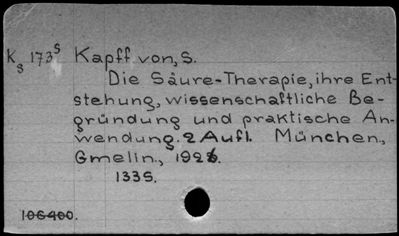 Ks 173s Kapff von, S.
Die Säure-Therapie, ihre Ent-
stehung, wissenschaftliche Be-
gründung und praktische An-
wendung. 2 Aufl. München,
Gmelin, 1926.
133S.
106400.